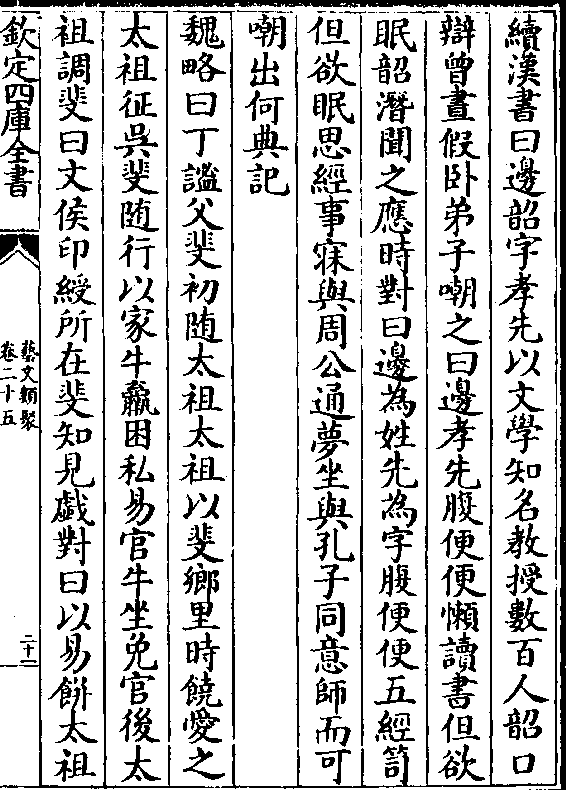 續漢書曰邊韶字孝先以文學知名教授數百人韶口
辯曾晝假卧弟子嘲之曰邊孝先腹便便懶讀書但欲
眠韶潛聞之應時對曰邊為姓先為字腹便便五經笥
但欲眠思經事寐與周公通夢坐與孔子同意師而可
嘲出何典記
魏略曰丁謐父斐初随太祖太祖以斐鄉里時饒愛之
太祖征吳斐随行以家牛羸困私易官牛坐免官後太
祖調斐曰文侯印綬所在斐知見戲對曰以易餅太祖
欽定四庫全書
藝文類聚
卷二十五
二十一